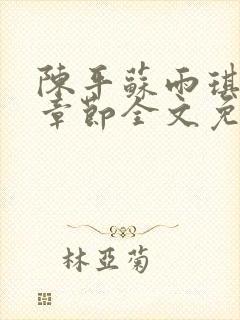 陳平蘇雨琪
章節全文免
林亞菊